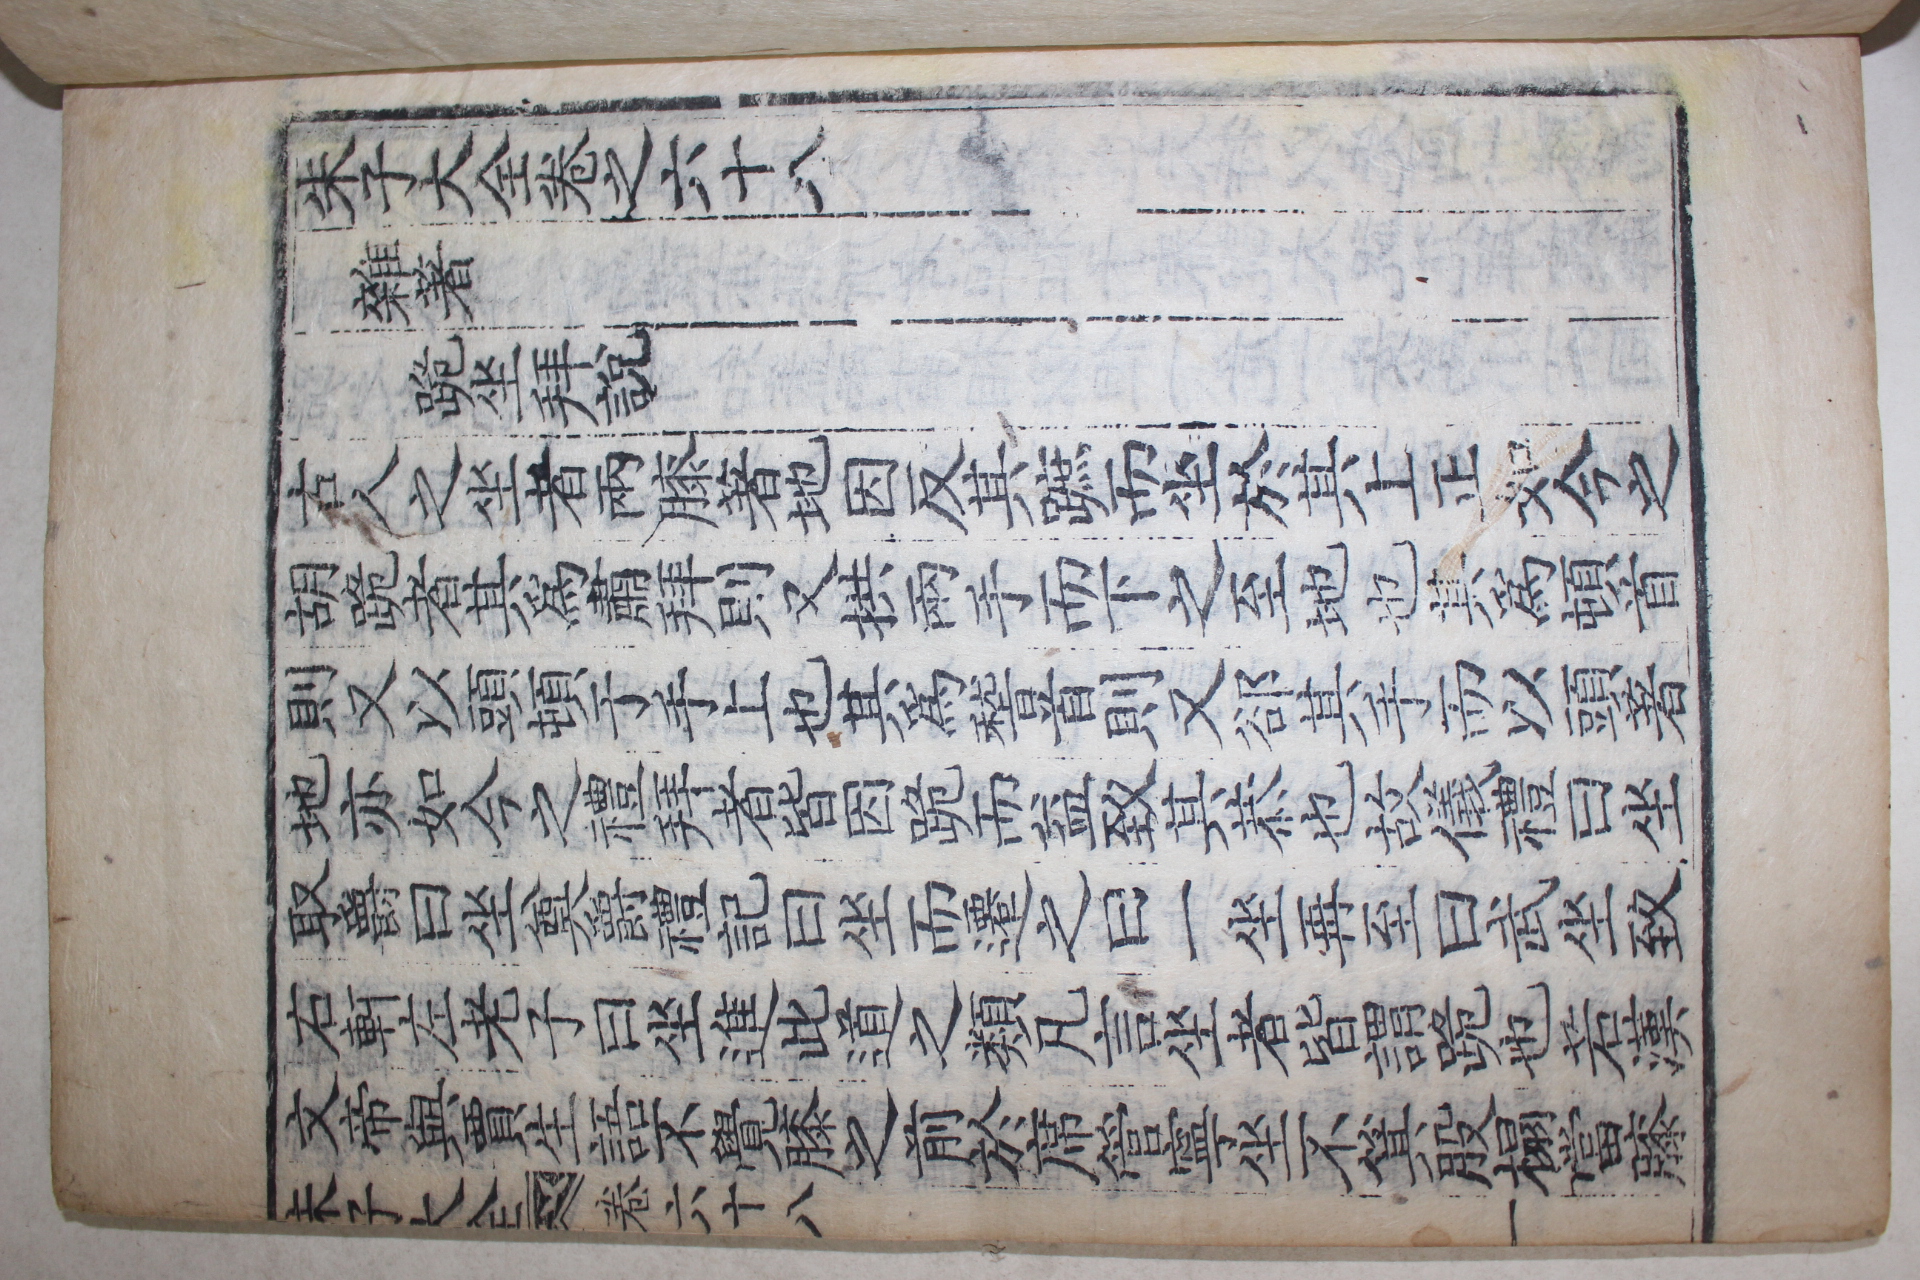 朱子大全卷之六十八
雜著
跪坐拜說
古人之坐者兩膝著地因反其蹠而坐於其上正如今之
胡跪者其爲肅拜則又拱兩手而下之至地也其爲頓首
則又以頭頓于手上也其爲稽首則又郤其手而以頭著
地亦如今之禮拜者皆因跪而益致其恭也故儀禮曰坐
取爵曰坐奠爵禮記曰坐而遷之曰一坐再至曰武坐致
右軒左老子曰坐進此道之類凡言坐者皆謂跪也若漢
文帝與賈生語不覺膝之前於席管寧坐不箕股榻當膝
朱子大全 卷六十八 一